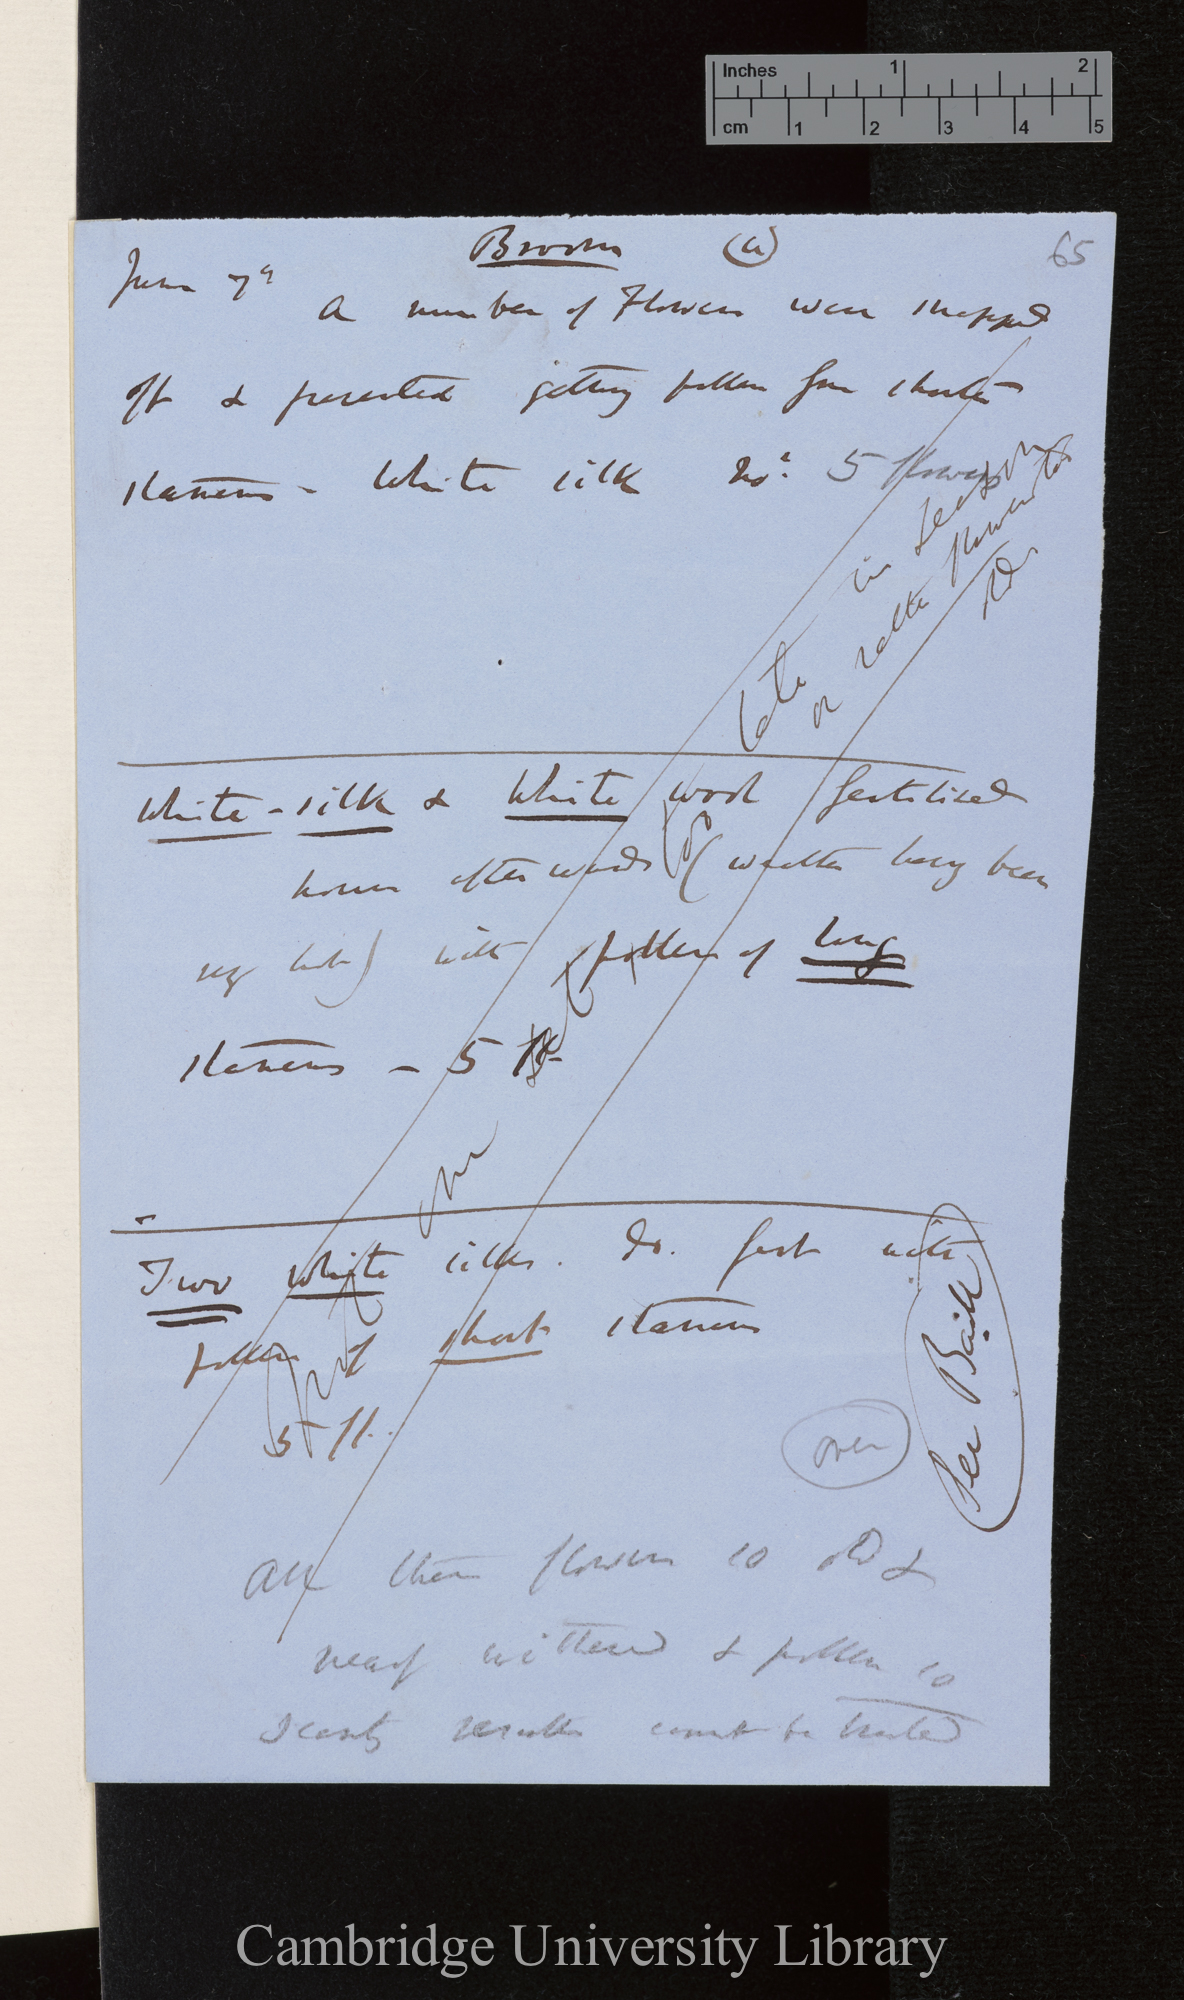 Inches 1 2
cm 1 2 3 4 5
Broom (a) 65
June 7th
A number of Flowers were snapped
off & prevented getting pollen from shorter
stamens - White silk No. 5 flowers
late in season
or rather flowers too
old
White-silk & White wool fertilised
hours afterwards (weather having been
very hot) with pollen of long
stamens - 5
Two White silks. do. fert with
pollen of short stamens
5 fl.
over
See Back
All these flowers so old &
nearly withered & pollen so
scanty results cannot be trusted
Cambridge University Library